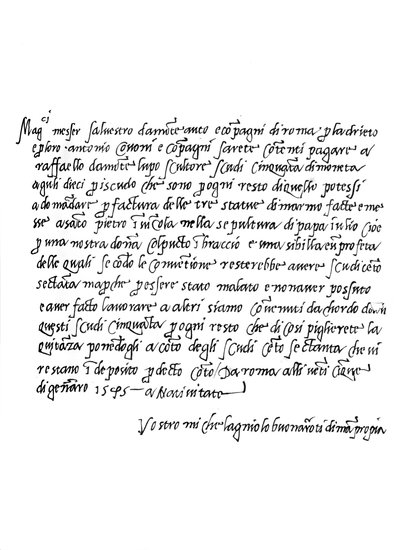 Mag.ci messer salvestro da mōte auto e cōpagni di roma p̱ la drieto
e p̱ loro. antonio covoni e cōpagni sarete cōtenti pagare a
raffaello da mōte lupo scultore scudi cinquāta di moneta
a iuli dieci p̱ iscudo che sono p̱ ogni resto di quello potessi
adomādare p̱ factura delle tre statue di marmo facte e me
sse a sācto pietro ī vīcola nella sepultura di papa iulio cioe
p̱ una nostra dōna col pucto ī braccio e una sibilla e ū profeta
delle quali secōdo le cōvētione resterebbe avere scudi cēto
sectāta ma p̱ che p̱ essere stato malato e non aver possuto
e aver facto lavorare a altri siamo cōvenuti dachordo
questi scudi cinquāta p̱ ogni resto che di cosi piglierete la
quitāza ponēdogli a cōto degli scudi cēto sectanta che vi
restano ī deposito p̱ decto cōto / Da roma alli vēti cīque
di gennaro 1545 – a nativitate
Vostro michelagniolo buonarroti di mā propia